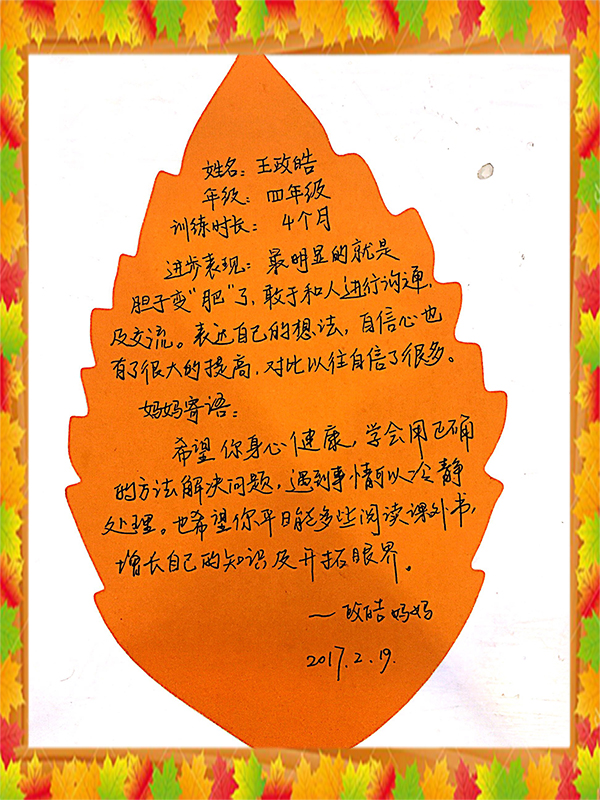 姓名：王政皓
年级：四年级
训练时长：4个月
进步表现：最明显的就是
胆子变“肥”了，敢于和人进行沟通，
及交流。表达自己的想法，自信心也
有了很大的提高，对比以往自信了很多。
妈妈寄语：
希望你身心健康，学会用正确
的方法解决问题，遇到事情可以冷静
处理。也希望你平日能多些阅读课外书，
增长自己的知识及开拓眼界。
—政皓妈妈
2017.2.19.